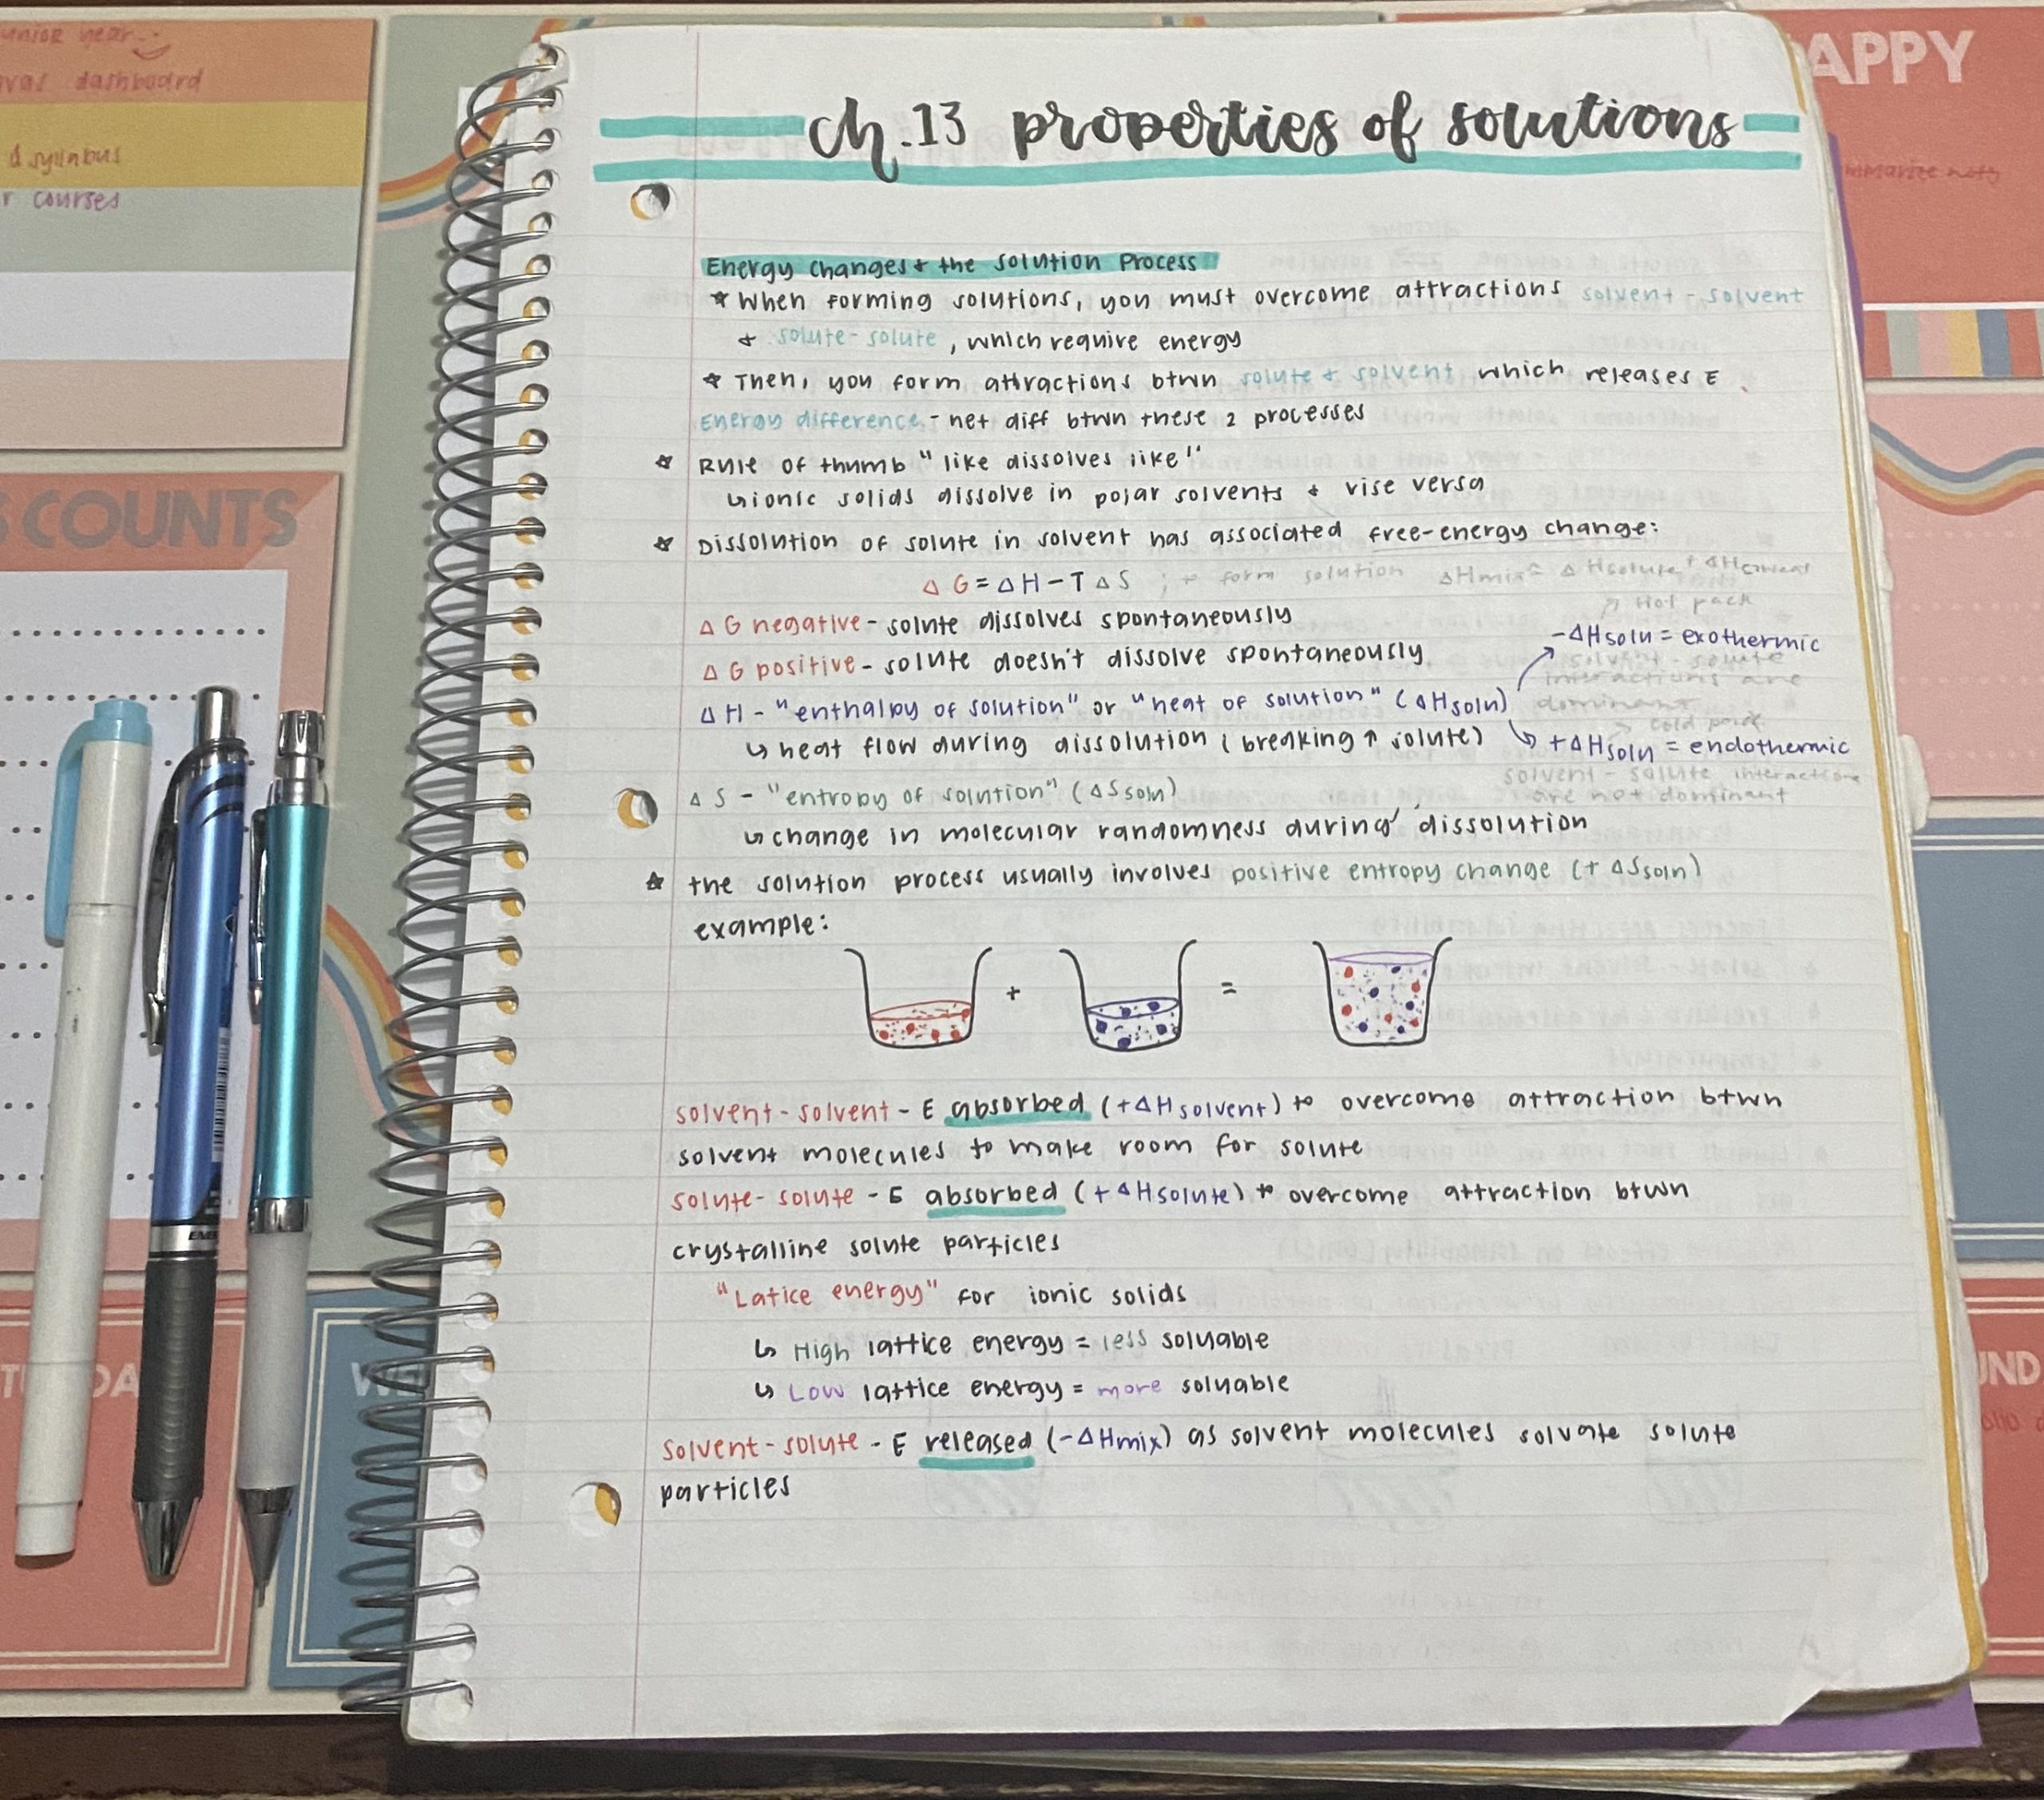 junior year
dashboard
& syllabus
r courses
COUNTS
APPY
ch.13 properties of solutions
Energy changes + the solution Process
* When forming solutions, you must overcome attractions solvent-solvent
+ solute-solute, which require energy
* Then, you form attractions btwn solute + solvent which releases E
Energy difference - net diff btwn these 2 processes
☆ Rule of thumb "like dissolves like"
↳ ionic solids dissolve in polar solvents + vise versa
☆ Dissolution of solute in solvent has associated free-energy change:
Δ G = Δ H - T Δ S ; to form solution ΔHmix = ΔHsolute + ΔHsolvent
↗ Hot pack
Δ G negative - solute dissolves spontaneously
-ΔHsoln = exothermic
Δ G positive - solute doesn't dissolve spontaneously
solvent-solute
interactions are
dominant
Δ H - "enthalpy of solution" or "heat of solution" (ΔHsoln)
↗ cold pack
↳ heat flow during dissolution (breaking ↑ solute)
+ΔHsoln = endothermic
solvent-solute interactions
are not dominant
Δ S - "entropy of solution" (ΔSsoln)
↳ change in molecular randomness during dissolution
☆ the solution process usually involves positive entropy change (+ ΔSsoln)
example:
+ =
solvent-solvent - E absorbed (+ΔHsolvent) to overcome attraction btwn
solvent molecules to make room for solute
solute-solute - E absorbed (+ΔHsolute) to overcome attraction btwn
crystalline solute particles
"Latice energy" for ionic solids
↳ High lattice energy = less soluable
↳ Low lattice energy = more soluable
solvent-solute - E released (-ΔHmix) as solvent molecules solvate solute
particles